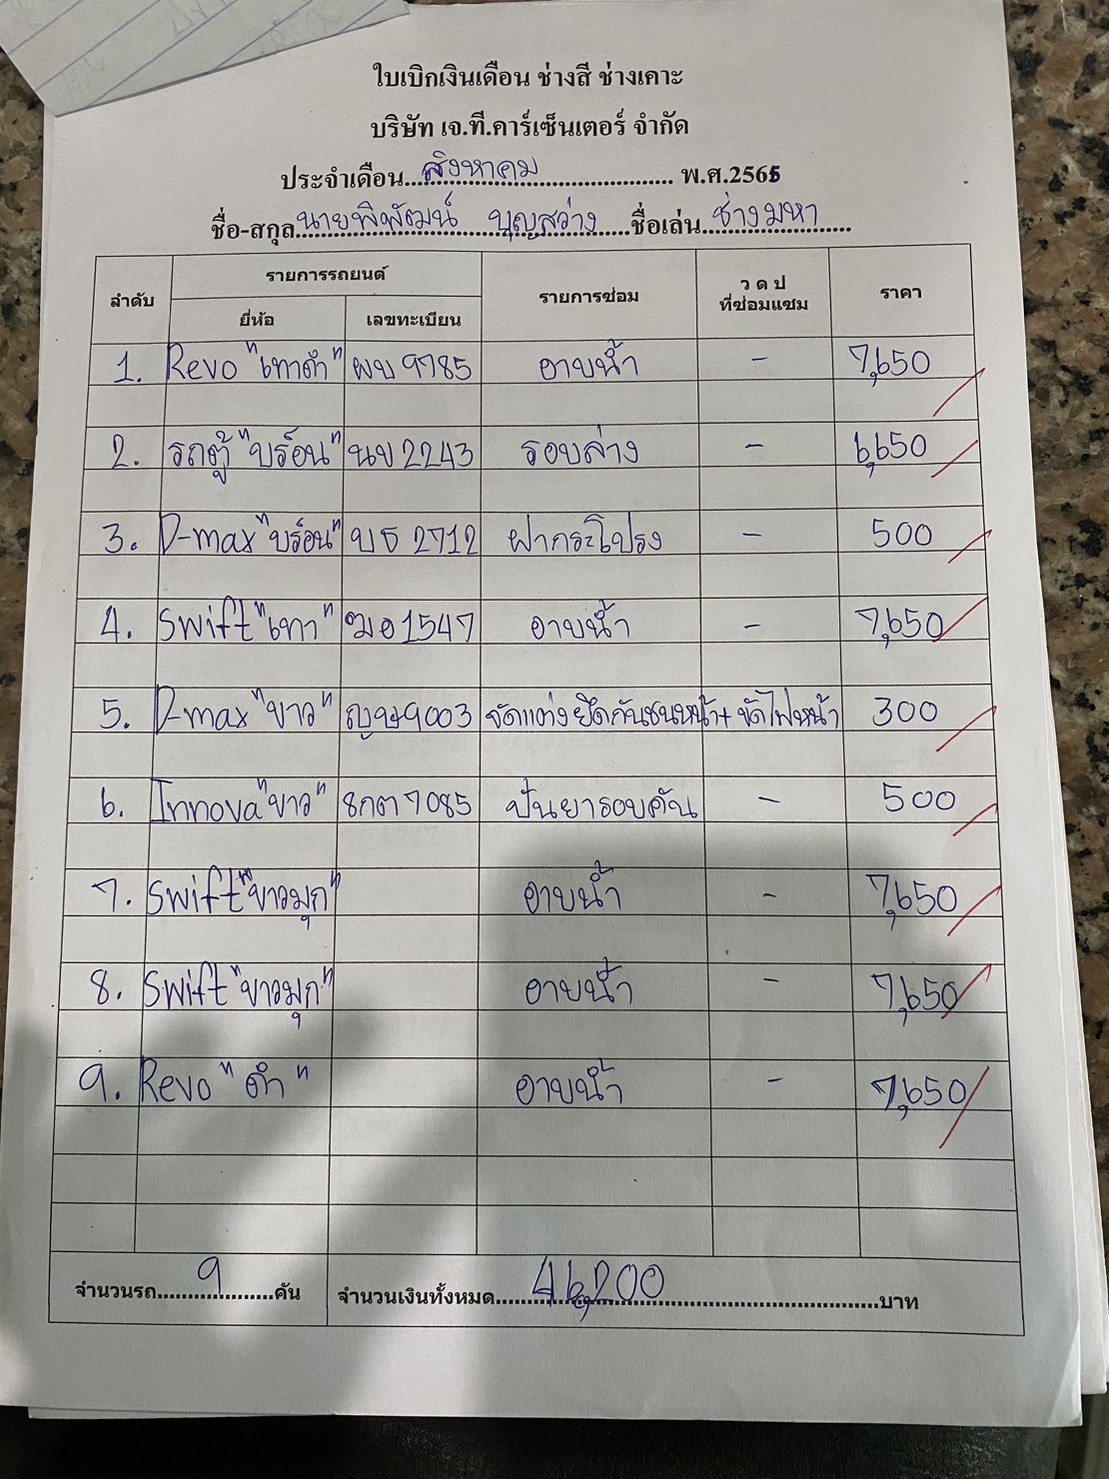 ใบเบิกเงินเดือน ช่างสี ช่างเคาะ
บริษัท เจ.ที.คาร์เซ็นเตอร์ จำกัด
ประจำเดือน สิงหาคม พ.ศ.2565
ชื่อ-สกุล นายพิพัฒน์ บุญสว่าง ชื่อเล่น ช่างมหา
ลำดับ รายการรถยนต์ รายการซ่อม ว ด ป ที่ซ่อมแซม ราคา
ยี่ห้อ เลขทะเบียน
1. Revo "เทาดำ" ผบ 9785 อาบน้ำ - 7,650
2. รถตู้ "บร็อน" นข 2243 รอบล่าง - 6,650
3. D-max "บร็อน" บธ 2712 ฝากระโปรง - 500
4. Swift "เทา" 1547 อาบน้ำ - 7,650
5. D-max "ขาว" ญษ 9003 จัดแต่งยึดกันชนหน้า + ขัดไฟหน้า 300
6. Innova "ขาว" 8กต 7085 ปั่นยารอบคัน - 500
7. Swift "ขาวมุก" อาบน้ำ - 7,650
8. Swift "ขาวมุก" อาบน้ำ - 7,650
9. Revo "ดำ" อาบน้ำ - 7,650
จำนวนรถ 9 คัน จำนวนเงินทั้งหมด 46,200 บาท